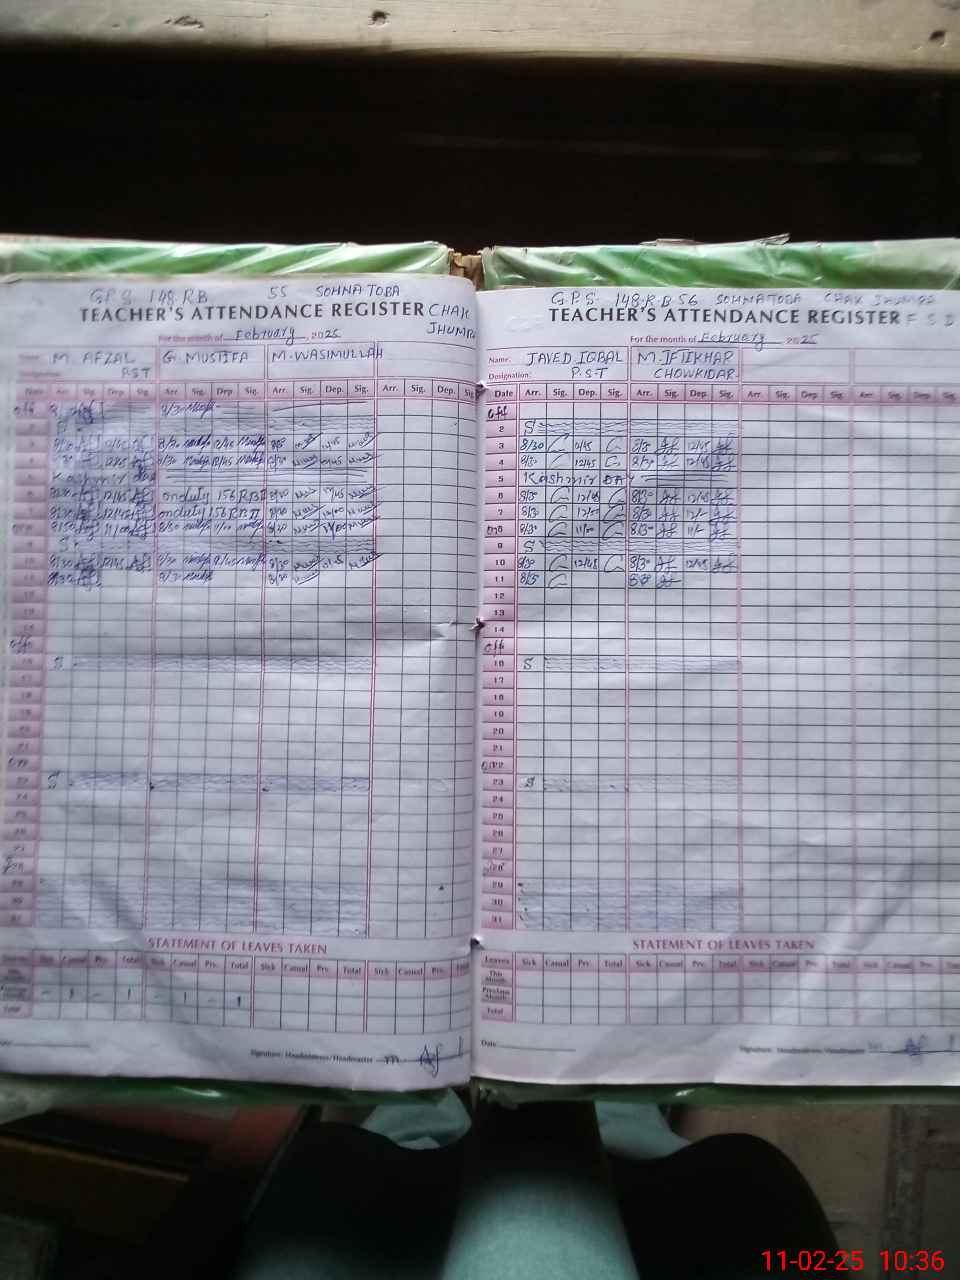 G.P.S. 148.RB 55 SOHNA TOBA
TEACHER'S ATTENDANCE REGISTER CHAK
JHUMRA
For the month of February, 2025
Name: M. AFZAL G. MUSTIFA M. WASIMULLAH
Designation: P.S.T
Date Arr. Sig. Dep. Sig. Arr. Sig. Dep. Sig. Arr. Sig. Dep. Sig. Arr. Sig. Dep. Sig.
off 8/30
S
3 8/30 8/30 12/45
4 8/30 12/45 8/30 12/45 8/30 12/45
Kashmir day
6 8/30 12/45 onduty 156 RB II 8/30 12/45
7 8/30 12/45 onduty 156 RB II 8/30 12/00
8/30 11/00 8/30 11/00 8/30 11/00
9 S
10 8/30 12/45 8/30 12/45 8/30
11 8/30 8/30 8/30
12
13
14
off
16 S
17
18
19
20
21
22
23 S
24
25
26
27
28
29
30
31
STATEMENT OF LEAVES TAKEN
Leaves Sick Casual Prv. Total Sick Casual Prv. Total Sick Casual Prv. Total Sick Casual Prv. Total
This Month
Previous Month - 1 - 1 - 1 - 1
Total
Signature: Headmistress/Headmaster
G.P.S. 148.R.B 56 SOHNATOBA CHAK JHUMRA
TEACHER'S ATTENDANCE REGISTER F S D
For the month of February 2025
Name: JAVED IQBAL M. IFTIKHAR
Designation: P.S.T CHOWKIDAR
Date Arr. Sig. Dep. Sig. Arr. Sig. Dep. Sig. Arr. Sig. Dep. Sig. Arr. Sig. Dep. Sig.
off
2 S
3 8/30 12/45 8/30 12/45
4 8/30 12/45 8/30 12/45
5 Kashmir DAY
6 8/30 12/45 8/30 12/45
7 8/30 12/00 8/30 12/-
8/30 11/00 8/30 11/-
9 S
10 8/30 12/45 8/30 12/45
11 8/30 8/30
12
13
14
off
16 S
17
18
19
20
21
22
23 S
24
25
26
27
28
29
30
31
STATEMENT OF LEAVES TAKEN
Leaves Sick Casual Prv. Total Sick Casual Prv. Total Sick Casual Prv. Total Sick Casual Prv.
This Month
Previous Month
Total
Date
Signature: Headmistress/Headmaster
11-02-25 10:36